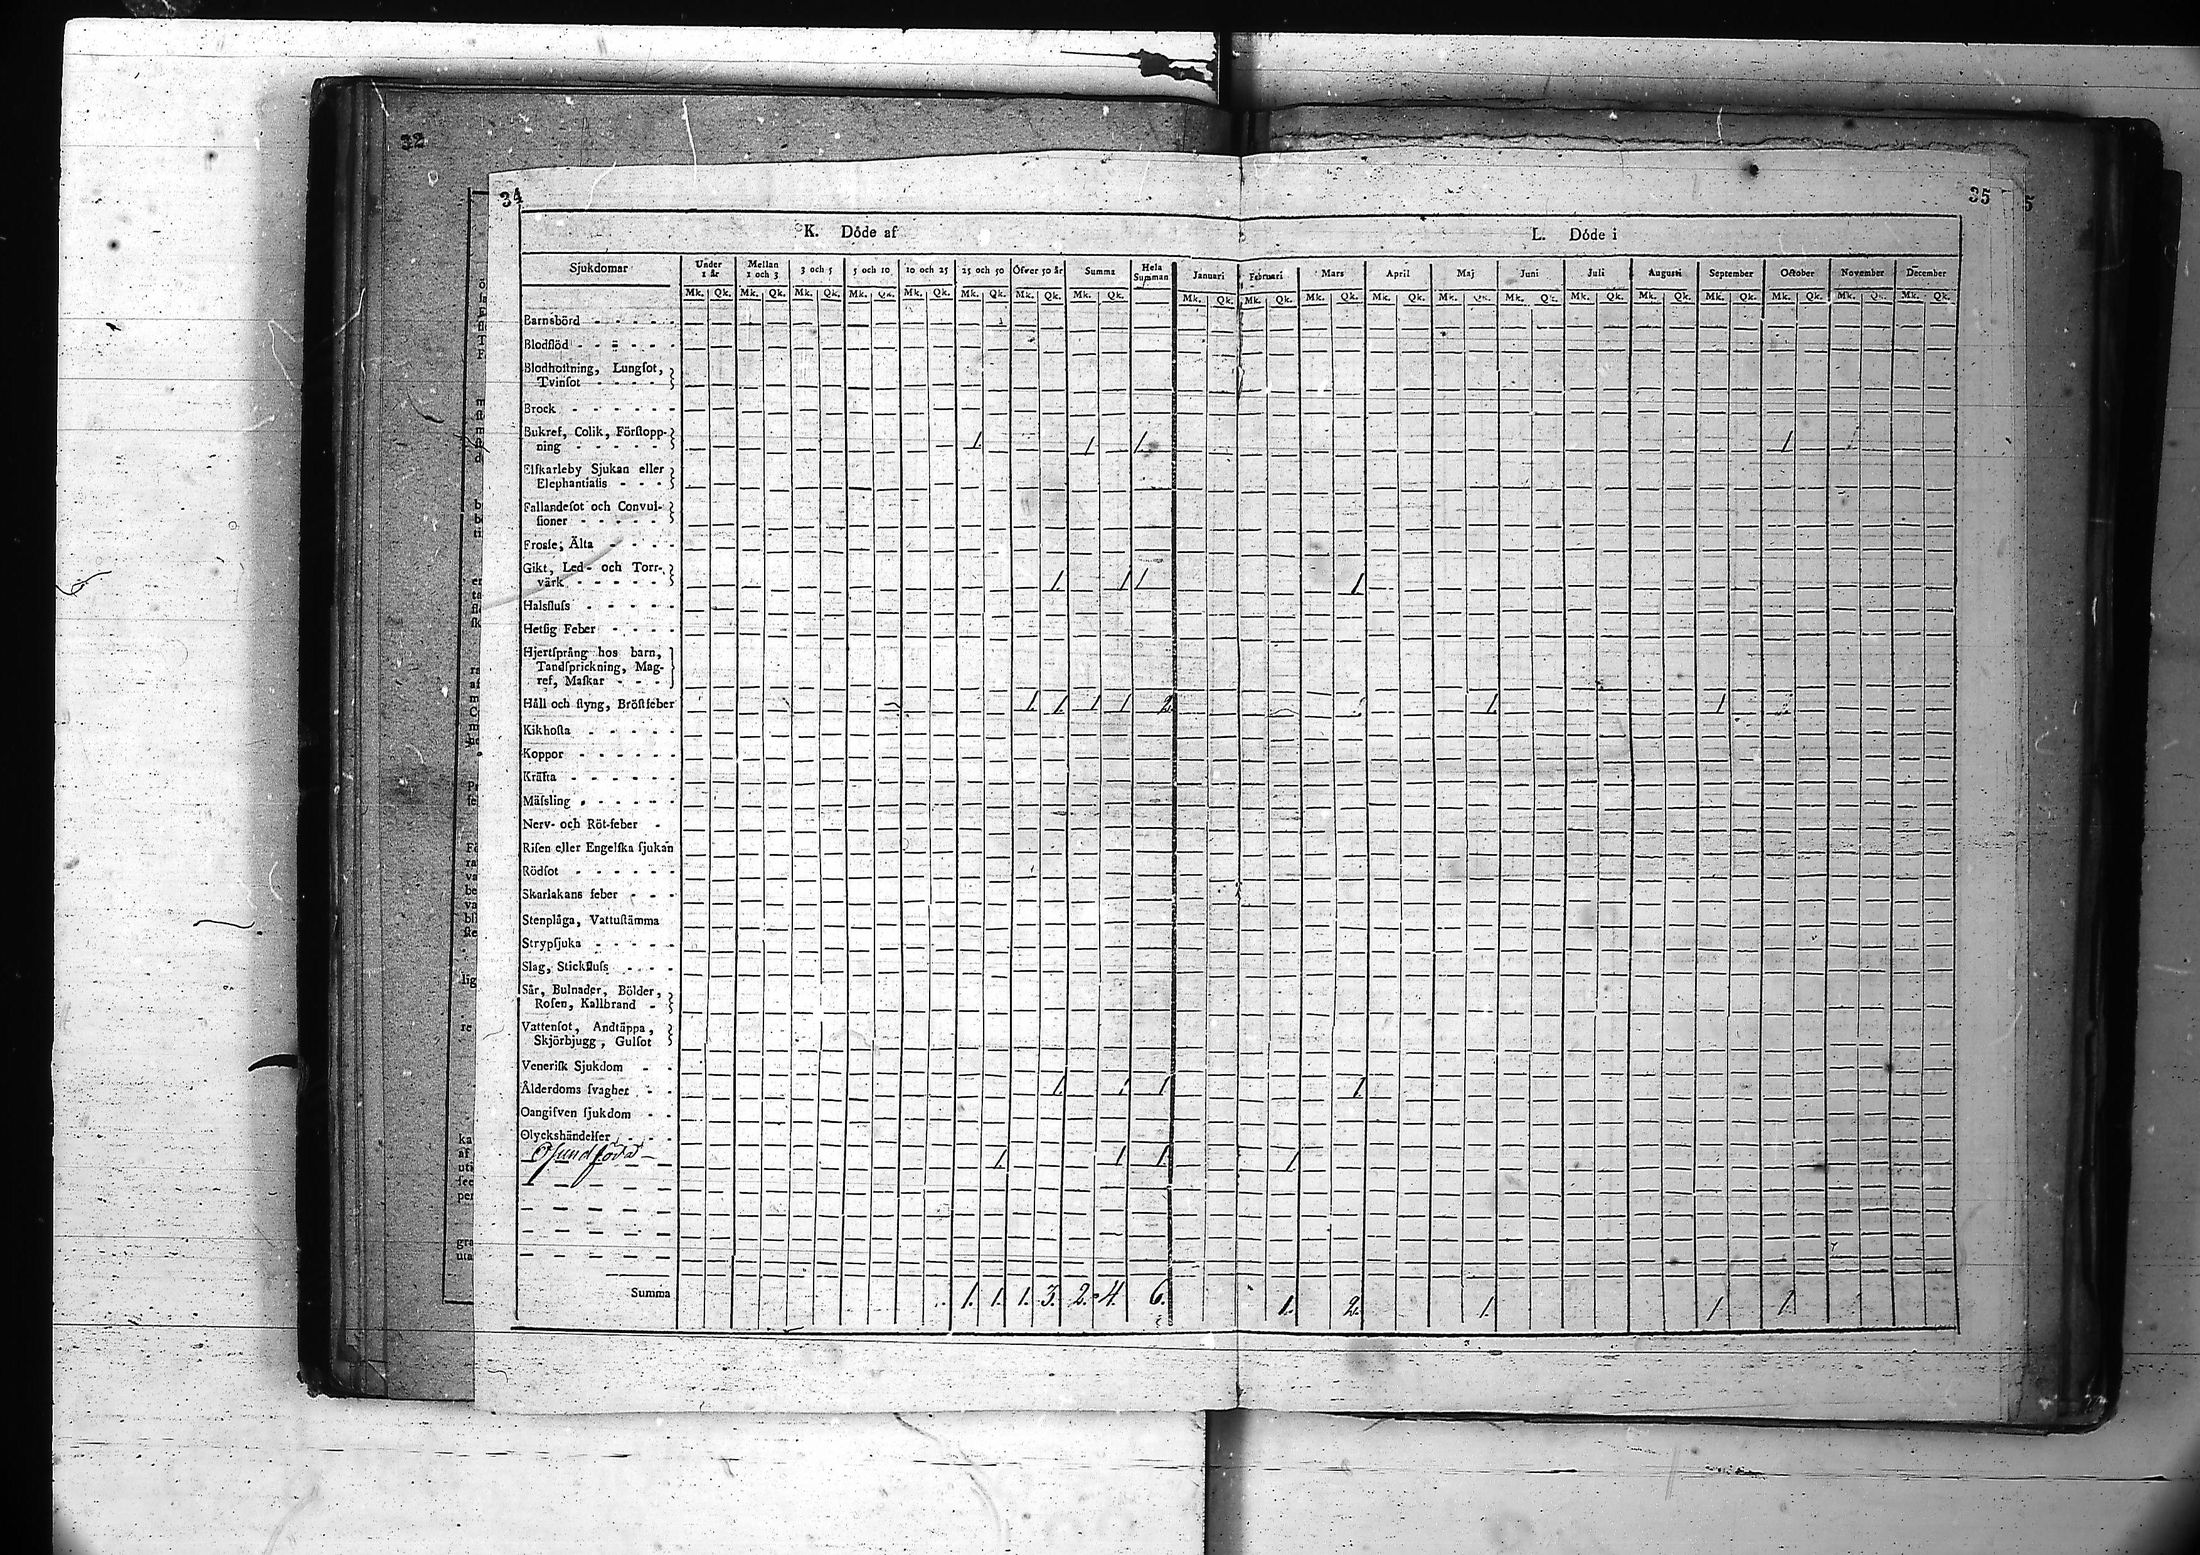 32
34
35
5
K. Döde af
L. Döde i
Sjukdomar Under 1 år Mellan 1 och 3 3 och 5 5 och 10 10 och 25 25 och 50 Öfwer 50 år Summa Hela Summan Januari Februari Mars April Maj Juni Juli Augusti September October November December
Mk. Qk. Mk. Qk. Mk. Qk. Mk. Qk. Mk. Qk. Mk. Qk. Mk. Qk. Mk. Qk. Mk. Qk. Mk. Qk. Mk. Qk. Mk. Qk. Mk. Qk. Mk. Qk. Mk. Qk. Mk. Qk. Mk. Qk. Mk. Qk. Mk. Qk. Mk. Qk.
Barnsbörd - - - - -
Blodflöd - - - - -
Blodhoſtning, Lungſot,
Tvinſot - - - -
Brock - - - - - -
Bukref, Colik, Förſtopp-
ning - - - - - 1 1 1 1
Elſkarleby Sjukan eller
Elephantiaſis - - -
Fallandeſot och Convul-
ſioner - - - - -
Frosſe, Älta - - - -
Gikt, Led- och Torr-
värk - - - - - 1. 1 1 1.
Halsfluſs - - - - -
Hetſig Feber - - - -
Hjertſprång hos barn,
Tandſprickning, Mag-
ref, Maſkar - - -
Håll och ſtyng, Bröſtfeber 1. 1. 1 1 2. 1. 1
Kikhoſta - - - - -
Koppor - - - - - -
Kräfta - - - - - -
Mäſsling - - - - -
Nerv- och Röt-feber -
Riſen eller Engelſka ſjukan
Rödſot - - - - -
Skarlakans feber - - -
Stenplåga, Vattuſtämma
Strypſjuka - - - - -
Slag, Stickfluſs - - - -
Sår, Bulnader, Bölder,
Roſen, Kallbrand -
Vattenſot, Andtäppa,
Skjörbjugg, Gulſot
Veneriſk Sjukdom - -
Ålderdoms ſvaghet - - 1. 1 1 1.
Oangifven ſjukdom - -
Olyckshändelſer - - -
1. 1 1. 1.
Summa 1. 1. 1. 3. 2. 4. 6. 1. 2. 1. 1 1.